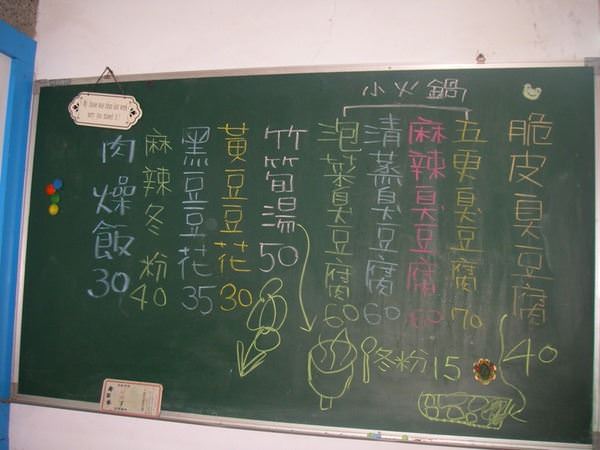 小火鍋
脆皮臭豆腐 40
五更臭豆腐 70
麻辣臭豆腐 60
清蒸臭豆腐 60
泡菜臭豆腐 60
竹筍湯 50
黃豆豆花 30
黑豆豆花 35
麻辣冬粉 40
肉燥飯 30
冬粉 15